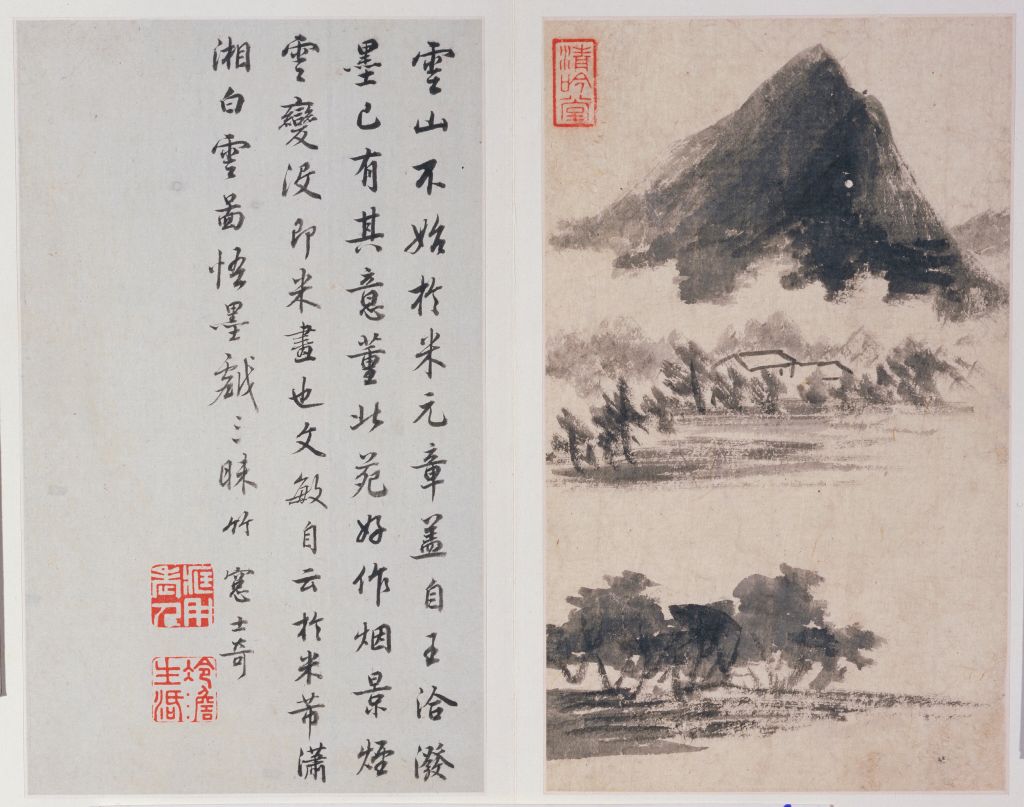 清吟堂
雲山不始於米元章盖自王洽潑
墨已有其意董北苑好作烟景煙
雲變没即米畫也文敏自云於米芾瀟
湘白雲啚悟墨戲三昧竹窻士奇
冷澹生活